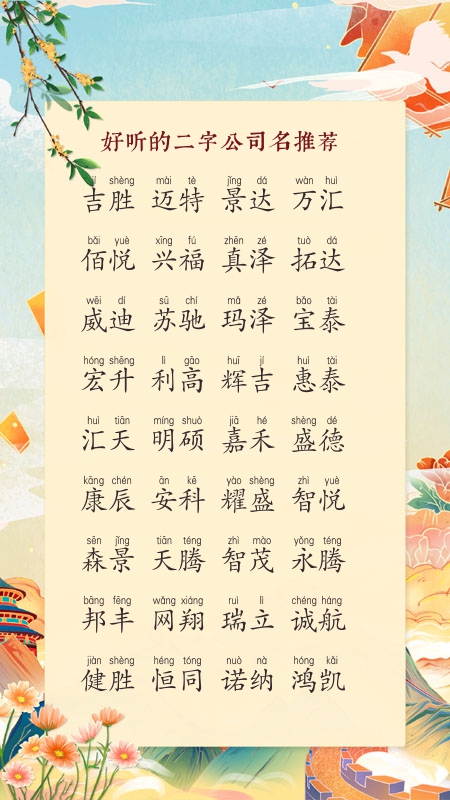 好听的二字公司名推荐
shèng mài tè jǐng dá wàn huì
吉胜 迈特 景达 万汇
bǎi yuè xīng fú zhēn zé tuò dá
佰悦 兴福 真泽 拓达
wēi dí sū chí mǎ zé bǎo tài
威迪 苏驰 玛泽 宝泰
hóng shēng lì gāo huī jí huì tài
宏升 利高 辉吉 惠泰
huì tiān míng shuò jiā hé shèng dé
汇天 明硕 嘉禾 盛德
kāng chén ān kē yào shèng zhì yuè
康辰 安科 耀盛 智悦
sēn jǐng tiān téng zhì mào yǒng téng
森景 天腾 智茂 永腾
bāng fēng wǎng xiáng ruì lì chéng háng
邦丰 网翔 瑞立 诚航
jiàn shèng héng tóng nuò nà hóng kǎi
健胜 恒同 诺纳 鸿凯